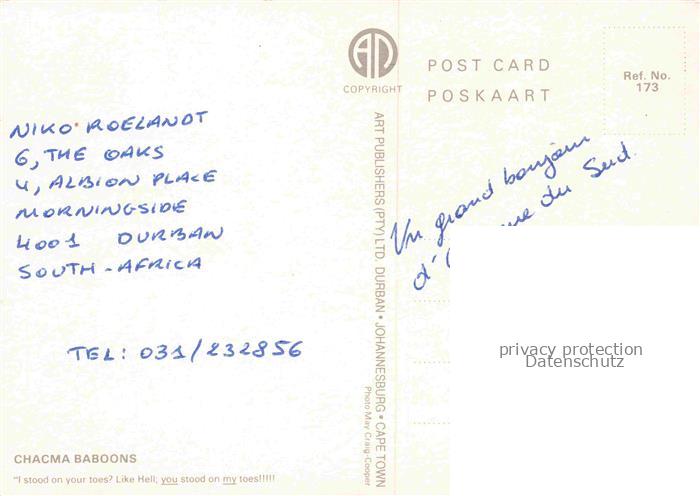 NIKO ROELANDT
6, THE OAKS
4, ALBION PLACE
MORNINGSIDE
4001 DURBAN
SOUTH-AFRICA
TEL: 031/232856
CHACMA BABOONS
"I stood on your toes? Like Hell; you stood on my toes!!!!!
AN
COPYRIGHT
ART PUBLISHERS (PTY) LTD. DURBAN • JOHANNESBURG • CAPE TOWN
Photo May Craig-Cooper
POST CARD
POSKAART
Ref. No.
173
Un grand bonjour
d' du Sud.
privacy protection
Datenschutz